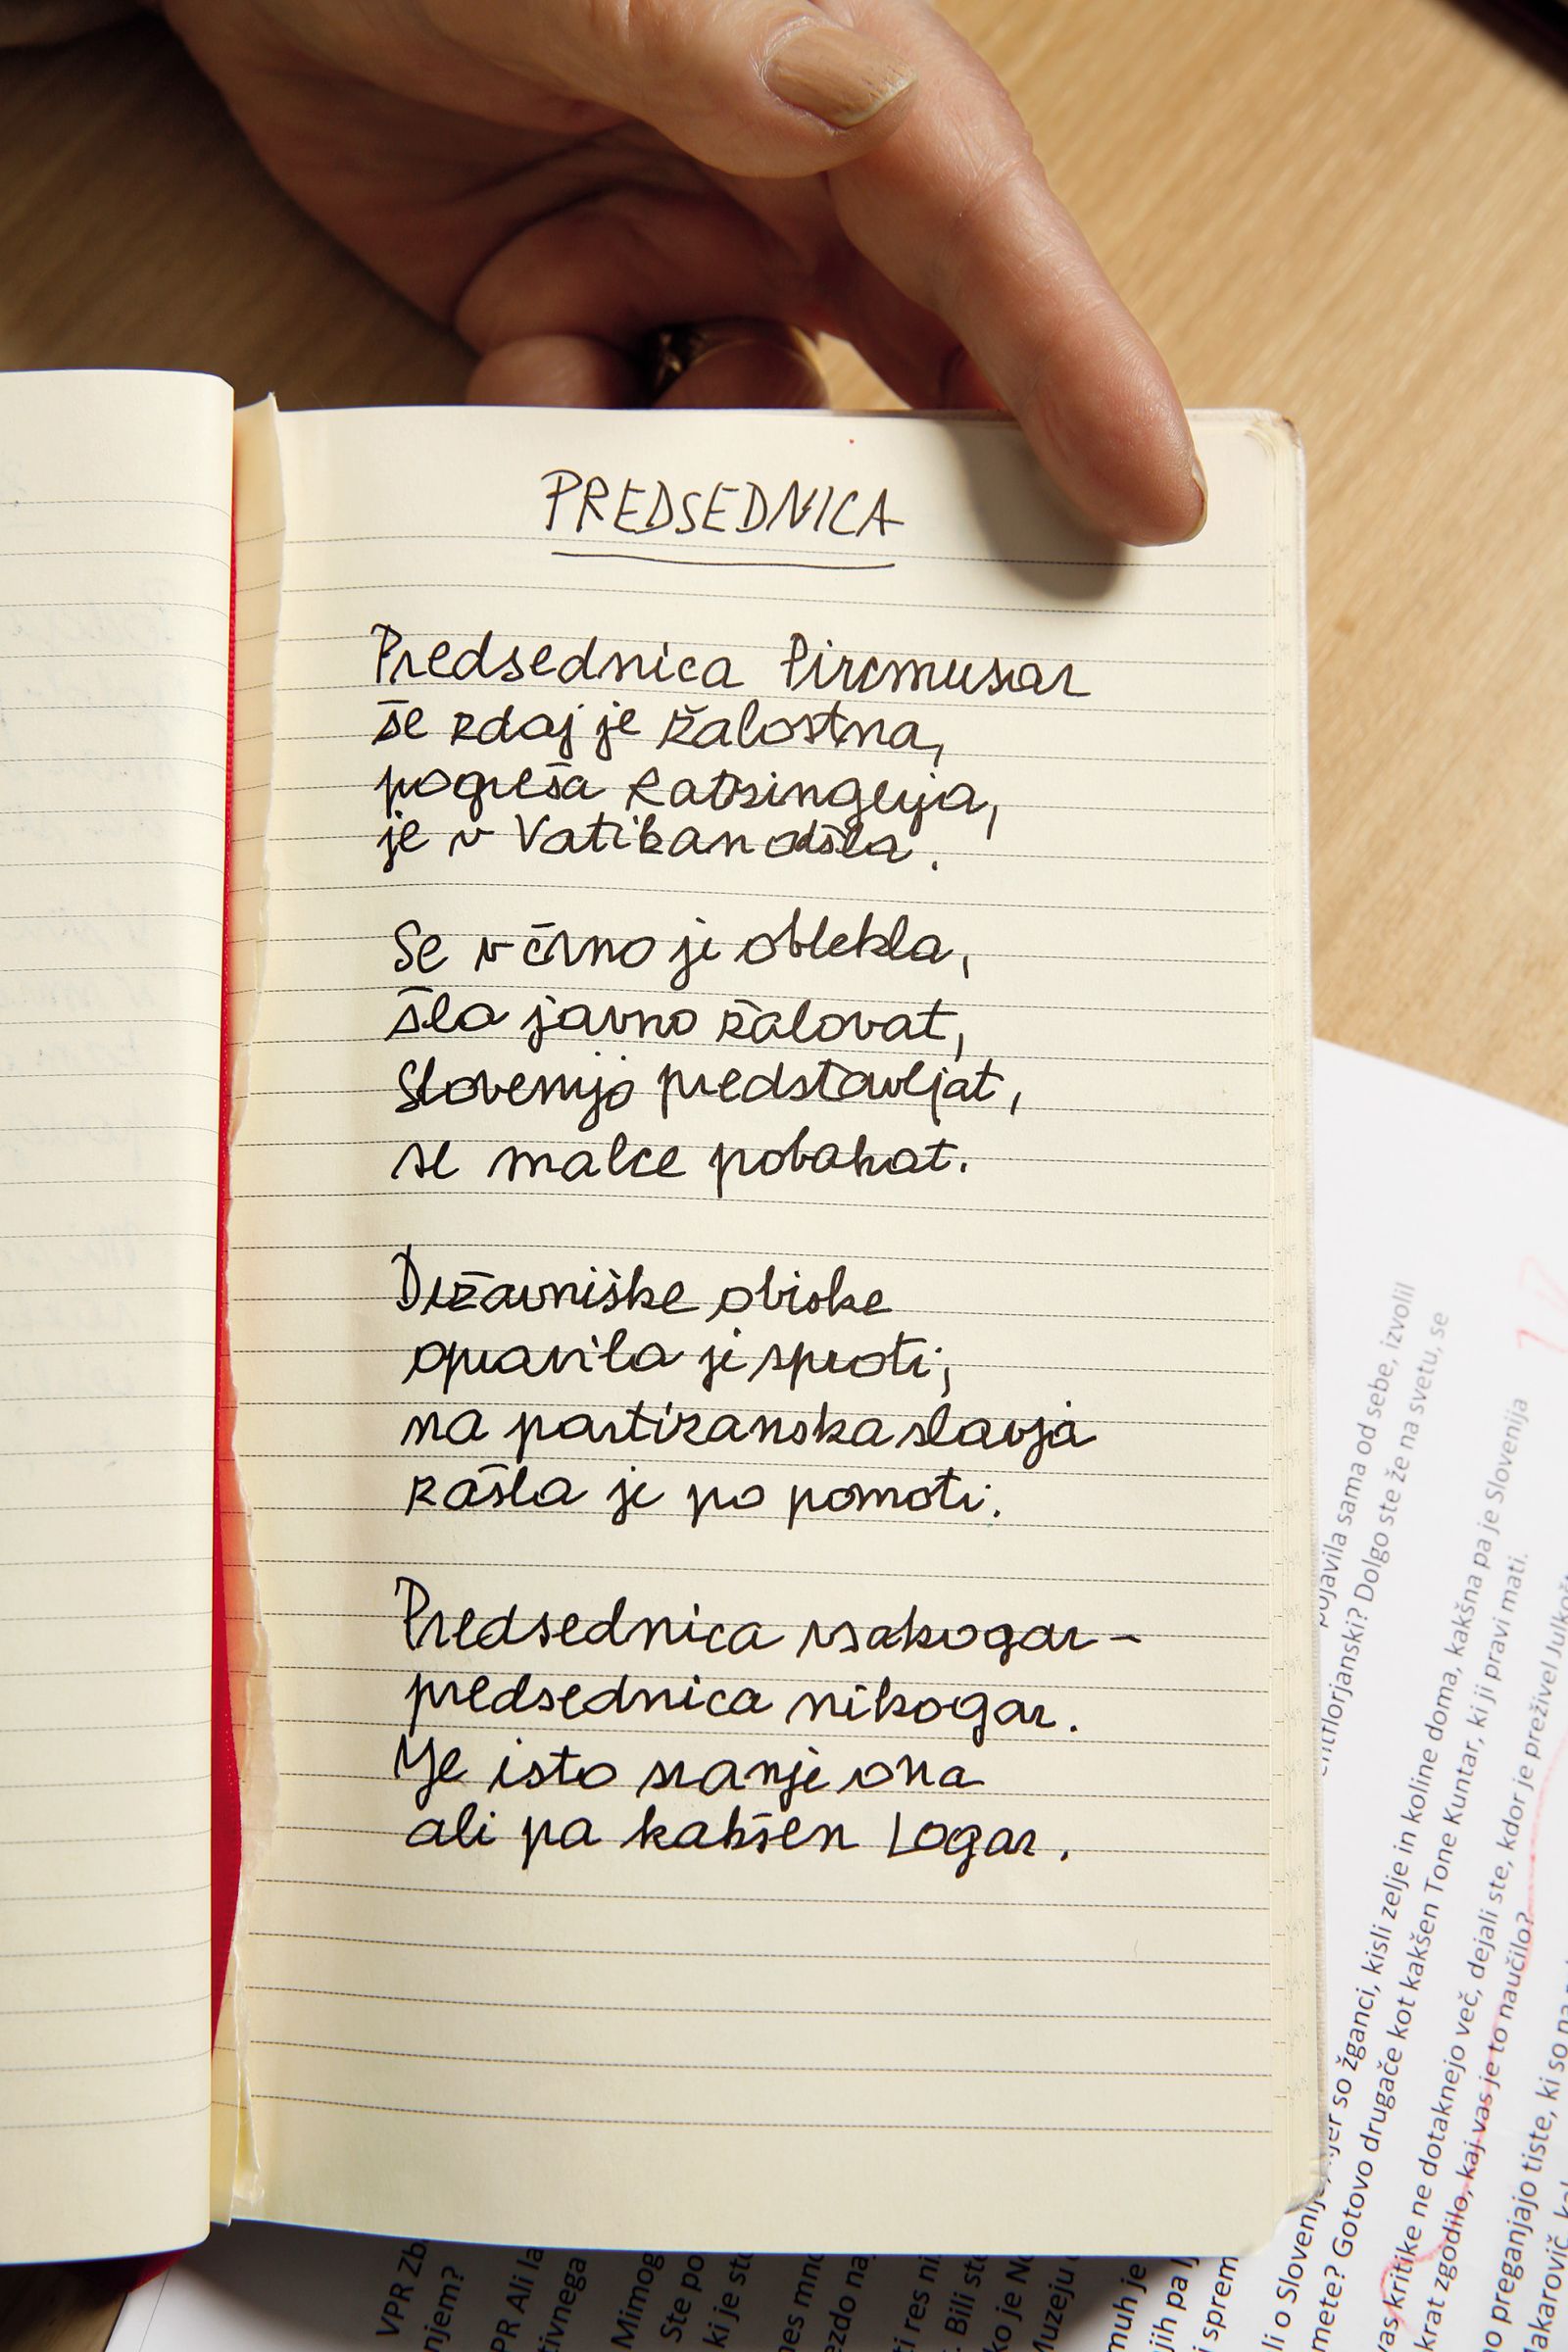 PREDSEDNICA
Predsednica Pircmusar
še zdaj je žalostna,
pogreša Ratzingerja,
je v Vatikan odšla.
Se v črno je oblekla,
šla javno žalovat,
Slovenijo predstavljat,
se malce pobahat.
Državniške obiske
opravila je sproti;
na partizanska slavja
zašla je po pomoti.
Predsednica vsakogar –
predsednica nikogar.
Je isto sranje ona
ali pa kakšen Logar.
pojavila sama od sebe, izvolil
entflorjanski? Dolgo ste že na svetu, se
li o Sloveniji, kjer so žganci, kisli zelje in koline doma, kakšna pa je Slovenija
mete? Gotovo drugače kot kakšen Tone Kuntar, ki ji pravi mati.
as kritike ne dotaknejo več, dejali ste, kdor je preživel Julkošt
krat zgodilo, kaj vas je to naučilo?
o preganjajo tiste, ki so na
lakarovič,
VPR Zb
njem?
PR Ali la
tivnega
Mimog
Ste po
ki je sto
nes mno
ezdo na
ti res ni
. Bili ste
ko je No
Muzeju
muh je
jih pa lj
i sprem